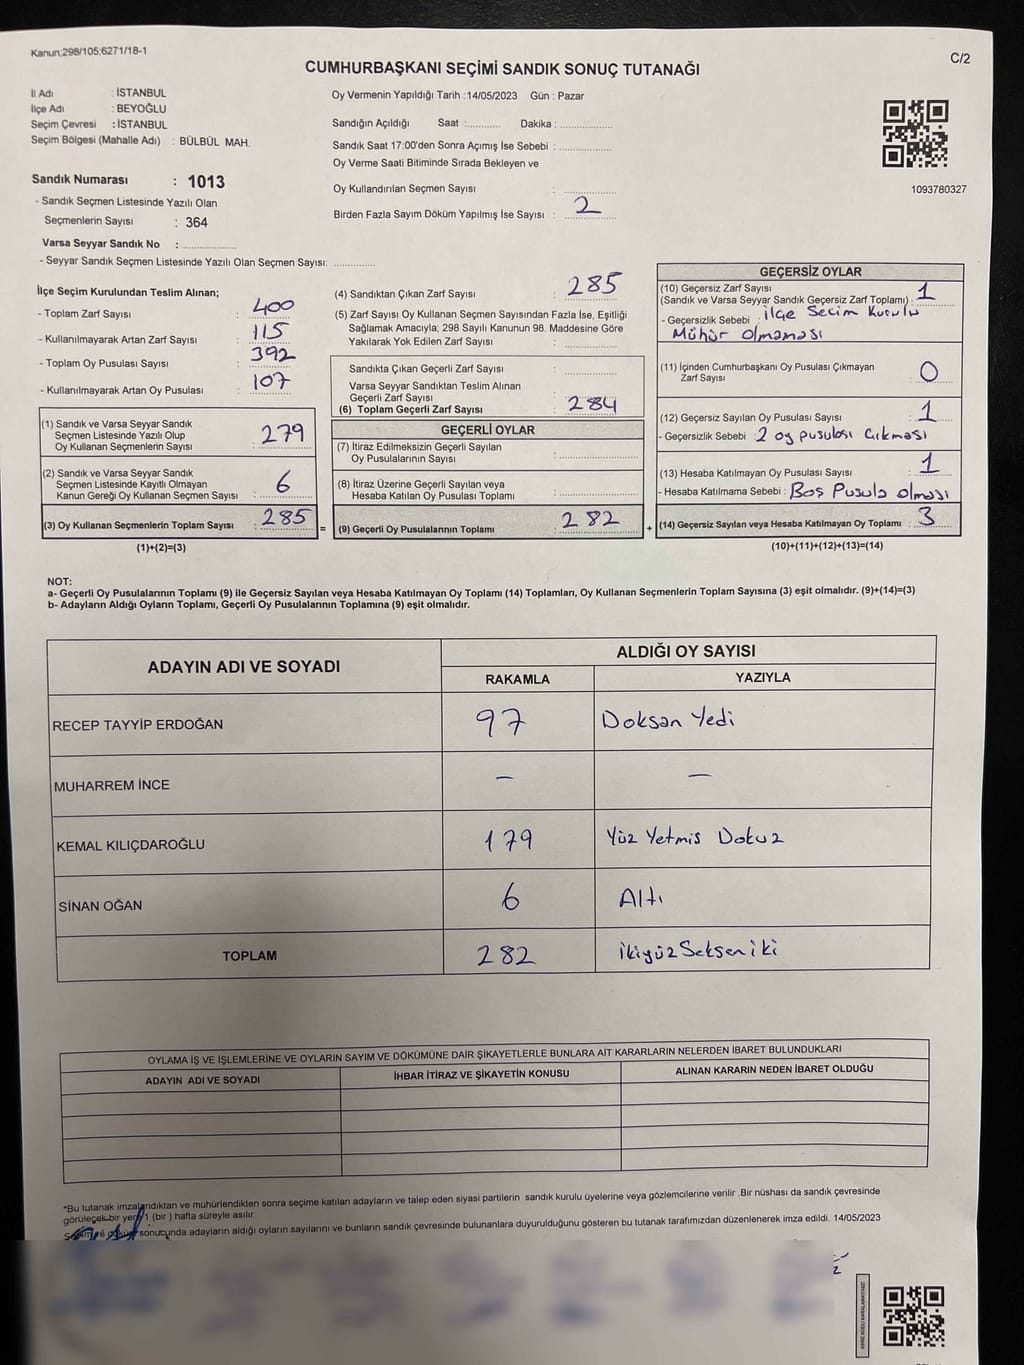 Kanun:298/105;6271/18-1
C/2
CUMHURBAŞKANI SEÇİMİ SANDIK SONUÇ TUTANAĞI
İl Adı : İSTANBUL
İlçe Adı : BEYOĞLU
Seçim Çevresi : İSTANBUL
Seçim Bölgesi (Mahalle Adı) : BÜLBÜL MAH.
Sandık Numarası : 1013
- Sandık Seçmen Listesinde Yazılı Olan
Seçmenlerin Sayısı : 364
Varsa Seyyar Sandık No : ................
- Seyyar Sandık Seçmen Listesinde Yazılı Olan Seçmen Sayısı: ............
Oy Vermenin Yapıldığı Tarih :14/05/2023 Gün : Pazar
Sandığın Açıldığı Saat :.......... Dakika : ...............
Sandık Saat 17:00'den Sonra Açımış İse Sebebi : ...............
Oy Verme Saati Bitiminde Sırada Bekleyen ve
Oy Kullandırılan Seçmen Sayısı : ...............
Birden Fazla Sayım Döküm Yapılmış İse Sayısı : 2
1093780327
İlçe Seçim Kurulundan Teslim Alınan;
- Toplam Zarf Sayısı : 400
- Kullanılmayarak Artan Zarf Sayısı : 115
- Toplam Oy Pusulası Sayısı : 392
- Kullanılmayarak Artan Oy Pusulası : 107
(1) Sandık ve Varsa Seyyar Sandık
Seçmen Listesinde Yazılı Olup
Oy Kullanan Seçmenlerin Sayısı : 279
(2) Sandık ve Varsa Seyyar Sandık
Seçmen Listesinde Kayıtlı Olmayan
Kanun Gereği Oy Kullanan Seçmen Sayısı : 6
(3) Oy Kullanan Seçmenlerin Toplam Sayısı : 285
(1)+(2)=(3)
=
(4) Sandıktan Çıkan Zarf Sayısı : 285
(5) Zarf Sayısı Oy Kullanan Seçmen Sayısından Fazla İse, Eşitliği
Sağlamak Amacıyla; 298 Sayılı Kanunun 98. Maddesine Göre
Yakılarak Yok Edilen Zarf Sayısı : ...............
Sandıkta Çıkan Geçerli Zarf Sayısı : ...............
Varsa Seyyar Sandıktan Teslim Alınan
Geçerli Zarf Sayısı : ...............
(6) Toplam Geçerli Zarf Sayısı : 284
GEÇERLİ OYLAR
(7) İtiraz Edilmeksizin Geçerli Sayılan
Oy Pusulalarının Sayısı : ...............
(8) İtiraz Üzerine Geçerli Sayılan veya
Hesaba Katılan Oy Pusulası Toplamı : ...............
(9) Geçerli Oy Pusulalarının Toplamı : 282
+
GEÇERSİZ OYLAR
(10) Geçersiz Zarf Sayısı
(Sandık ve Varsa Seyyar Sandık Geçersiz Zarf Toplamı) : 1
- Geçersizlik Sebebi : ilçe Secim Kurulu
Mühür olmaması
(11) İçinden Cumhurbaşkanı Oy Pusulası Çıkmayan
Zarf Sayısı : 0
(12) Geçersiz Sayılan Oy Pusulası Sayısı : 1
- Geçersizlik Sebebi : 2 oy pusulası Cıkması
(13) Hesaba Katılmayan Oy Pusulası Sayısı : 1
- Hesaba Katılmama Sebebi : Boş Pusula olması
(14) Geçersiz Sayılan veya Hesaba Katılmayan Oy Toplamı : 3
(10)+(11)+(12)+(13)=(14)
NOT:
a- Geçerli Oy Pusulalarının Toplamı (9) ile Geçersiz Sayılan veya Hesaba Katılmayan Oy Toplamı (14) Toplamları, Oy Kullanan Seçmenlerin Toplam Sayısına (3) eşit olmalıdır. (9)+(14)=(3)
b- Adayların Aldığı Oyların Toplamı, Geçerli Oy Pusulalarının Toplamına (9) eşit olmalıdır.
ADAYIN ADI VE SOYADI ALDIĞI OY SAYISI
RAKAMLA YAZIYLA
RECEP TAYYİP ERDOĞAN 97 Doksan Yedi
MUHARREM İNCE — —
KEMAL KILIÇDAROĞLU 179 Yüz Yetmis Dokuz
SİNAN OĞAN 6 Altı
TOPLAM 282 ikiyüzSekseniki
OYLAMA İŞ VE İŞLEMLERİNE VE OYLARIN SAYIM VE DÖKÜMÜNE DAİR ŞİKAYETLERLE BUNLARA AİT KARARLARIN NELERDEN İBARET BULUNDUKLARI
ADAYIN ADI VE SOYADI İHBAR İTİRAZ VE ŞİKAYETİN KONUSU ALINAN KARARIN NEDEN İBARET OLDUĞU
*Bu tutanak imzalandıktan ve mühürlendikten sonra seçime katılan adayların ve talep eden siyasi partilerin sandık kurulu üyelerine veya gözlemcilerine verilir .Bir nüshası da sandık çevresinde
görülecek bir yere 1 (bir ) hafta süreyle asılır.
sonucunda adayların aldığı oyların sayılarını ve bunların sandık çevresinde bulunanlara duyurulduğunu gösteren bu tutanak tarafımızdan düzenlenerek imza edildi. 14/05/2023